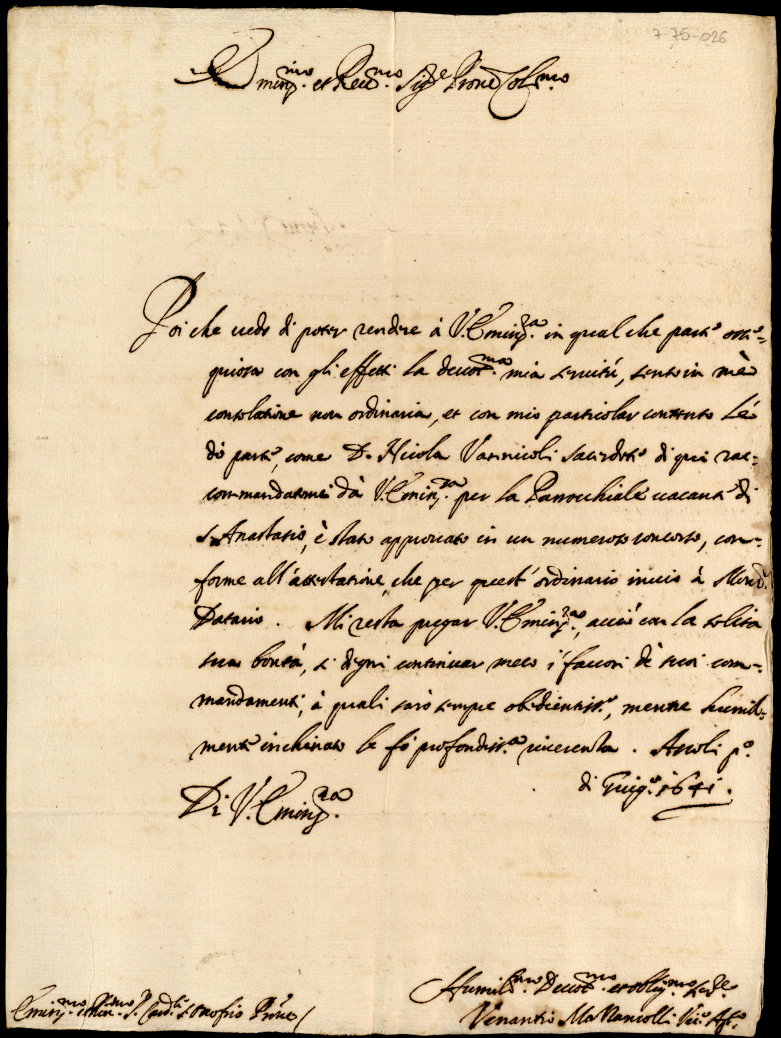 7-75-026
Emin.mo et Rev.mo Sig.re Prone Col.mo
Poi che vedo di poter rendere à V. Emin.za in qual che parte osse=
quiosa con gli effetti la devot.ma mia servitù, sento in mè
consolatione non ordinaria, et con mio particolar contento Le
dò parte, come D. Nicola Vannicoli sacerdote di quì rac=
commandatomi dà V. Emin.za per la Parrocchiale vacante di
s. Anastasio, è stato approvato in un numeroso concorso, con=
forme all'attestatione, che per quest'ordinario invio à Mons.r
Datario. Mi resta pregar V. Emin.za, acciò con la solita
sua bontà, si degni continuar meco i favori dè suoi com=
mandamenti, à quali sarò sempre obedientiss.o, mentre humil=
mente inchinato le fò profondiss.a riverenza. Ascoli p.o
di Giug.o 1641.
Di V. Emin.za
Humiliss.mo Devot.mo et oblig.mo
Venantio Vic.o
Emin.mo S. Card.le s. Onofrio